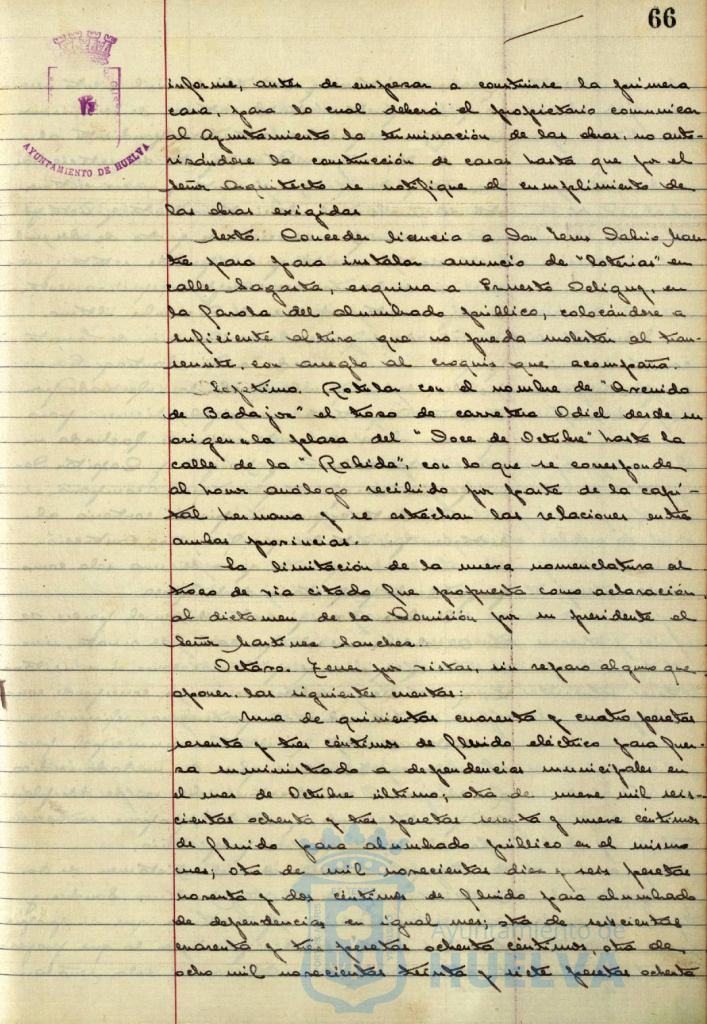 66
AYUNTAMIENTO DE HUELVA
informe, antes de empezar a construirse la primera
casa, para lo cual deberá el propietario comunicar
al Ayuntamiento la terminación de las obras, no auto-
rizándose la construcción de casas hasta que por el
Señor Arquitecto se notifique el cumplimiento de
las obras exigidas
Sexto. Conceder licencia a Don
para para instalar anuncio de "loterias" en
calle Sagasta, esquina a Ernesto Deligny, en
la farola del alumbrado público, colocándose a
suficiente altura que no pueda molestar al tran-
seunte, con arreglo al croquis que acompaña.
Septimo. Rotular con el nombre de "Avenida
de Badajoz" el trozo de carretera Odiel desde su
origen a la plaza del "Doce de Octubre" hasta la
calle de la "Rabida", con lo que se corresponde
al honor análogo recibido por parte de la capi-
tal hermana y se estrechan las relaciones entre
ambas provincias.
La limitación de la nueva nomenclatura al
trozo de via citado fue propuesta como aclaración
al dictamen de la Comisión por su presidente el
Señor Martinez Sanchez.
Octavo. Tener por vistas, sin reparo alguno que
oponer, las siguientes cuentas:
Una de quinientas cuarenta y cuatro pesetas
sesenta y tres céntimos de fluido eléctrico para fuer-
za suministrado a dependencias municipales en
el mes de Octubre último; otra de nueve mil seis-
cientas ochenta y tres pesetas sesenta y nueve céntimos
de fluido para alumbrado público en el mismo
mes; otra de mil novecientas diez y seis pesetas
noventa y dos céntimos de fluido para alumbrado
de dependencias en igual mes; otra de seiscientas
cuarenta y tres pesetas ochenta céntimos, otra de
ocho mil novecientas treinta y siete pesetas ochenta
Ayuntamiento de
HUELVA